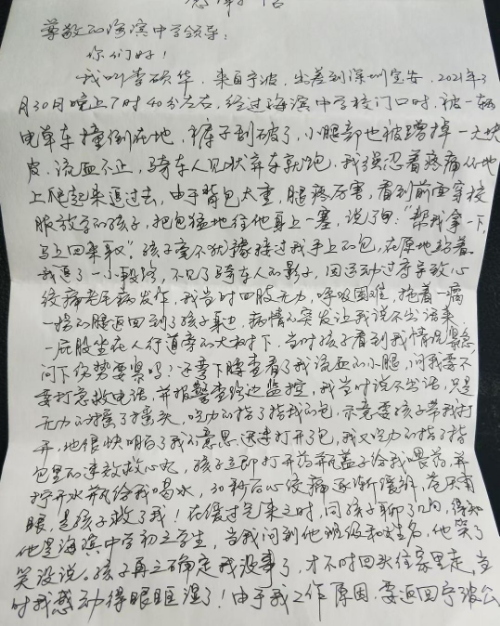 感谢信
尊敬的海滨中学领导:
你们好!
我叫李硕华,来自宁波,出差到深圳宝安,2021年3
月30日晚上7时40分左右,经过海滨中学校门口时,被一辆
电单车撞倒在地,裤子刮破了,小腿部也被蹭掉一大块
皮,流血不止,骑车人见状弃车就跑,我强忍着疼痛从地
上爬起来追过去,由于背包太重,腿疼厉害,看到前面穿校
服放学的孩子,把包猛地往他身上一塞,说了句:"帮我拿一下,
马上回来取"。孩子毫不犹豫接过我手上的包,在原地站着。
我追了一小段路,不见了骑车人的影子,因运动过度导致心
绞痛老毛病发作,我当时四肢无力,呼吸困难,拖着一瘸
一拐的腿返回到了孩子身边,病情的突发让我说不出话来,
一屁股坐在人行道旁的大树下,当时孩子看到我情况紧急,
问下伤势要紧吗?还弯下腰查看了我流血的小腿,问我要不
要打急救电话,并报警查路边监控,我当时说不出话,只是
无力的摇了摇头,吃力的指了指我的包,示意要孩子帮我打
开,他很快明白了我的意思,迅速打开了包,我又吃力的指了指
包里的速效救心丸,孩子立即打开药瓶盖子给我喂药,并
拧开水瓶给我喝水,30秒后心绞痛逐渐缓解,苍天有
眼,是孩子救了我!在缓过气来之时,同孩子聊了几句,得知
他是海滨中学初三学生,当我问到他班级和姓名,他笑了
笑没说。孩子再三确定我没事了,才不时回头往家里走,当
时我感动得眼眶湿了!由于我工作原因,要返回宁波公